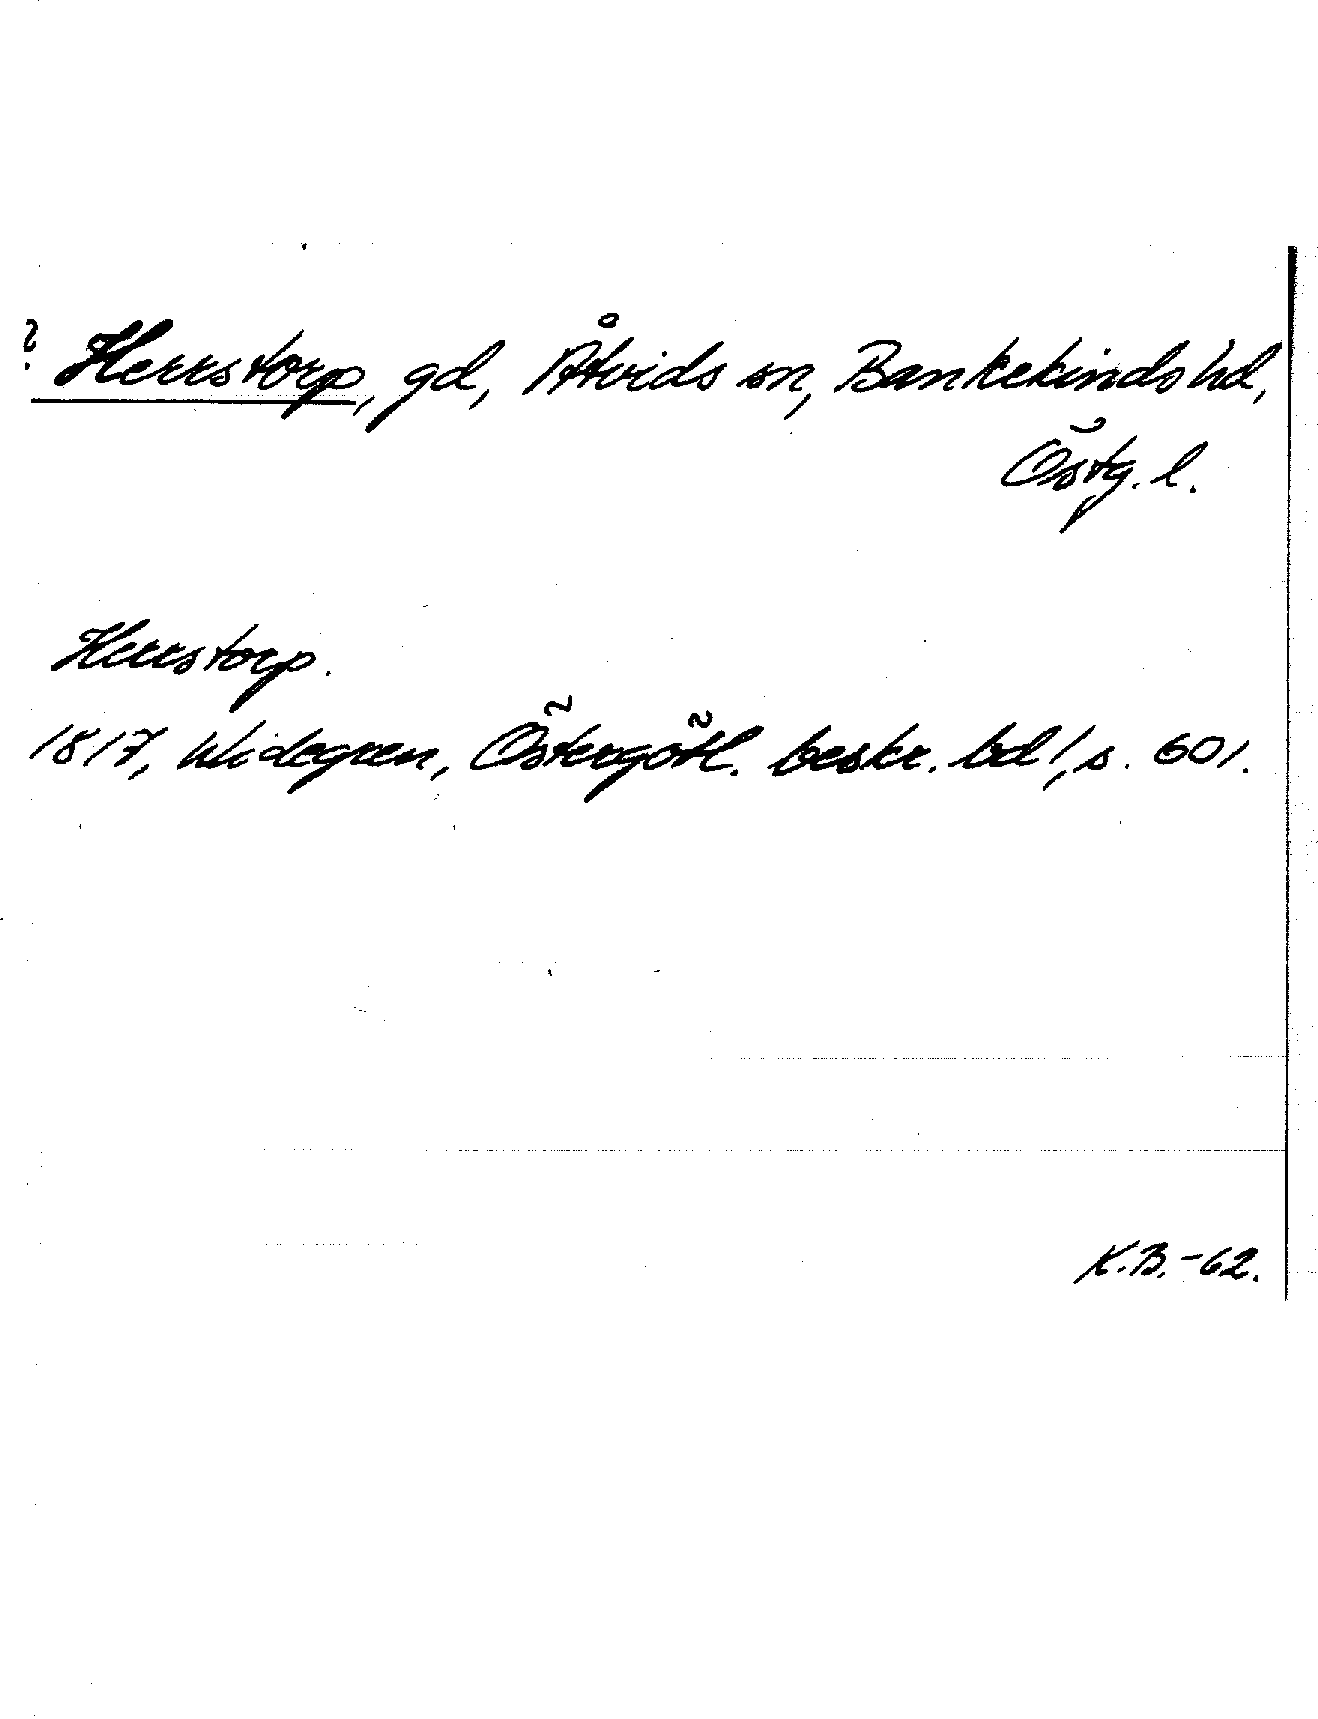 ? Herrstorp, gd, Åtvids sn, Bankekinds hd,
Östg. l.
Herrstorp.
1817, Widegren, Östergötl. beskr. bd 1, s. 601.
K.B.-62.